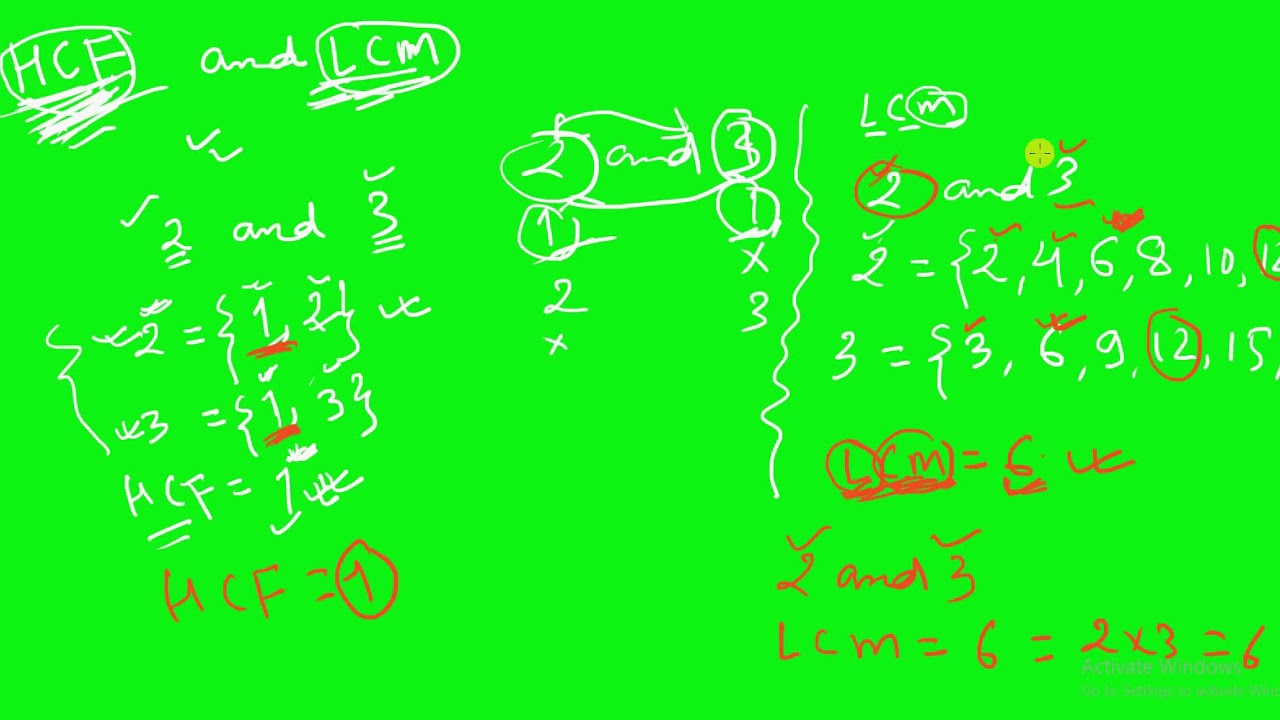 HCF and LCM
2 and 3
2 = {1, 2}
3 = {1, 3}
HCF = 1
HCF = 1
2 and 3
1 1
x
2 3
x
LCM
2 and 3
2 = {2, 4, 6, 8, 10, 12
3 = {3, 6, 9, 12, 15,
LCM = 6
2 and 3
LCM = 6 = 2x3 = 6
Activate Windows
Go to Settings to activate Wind